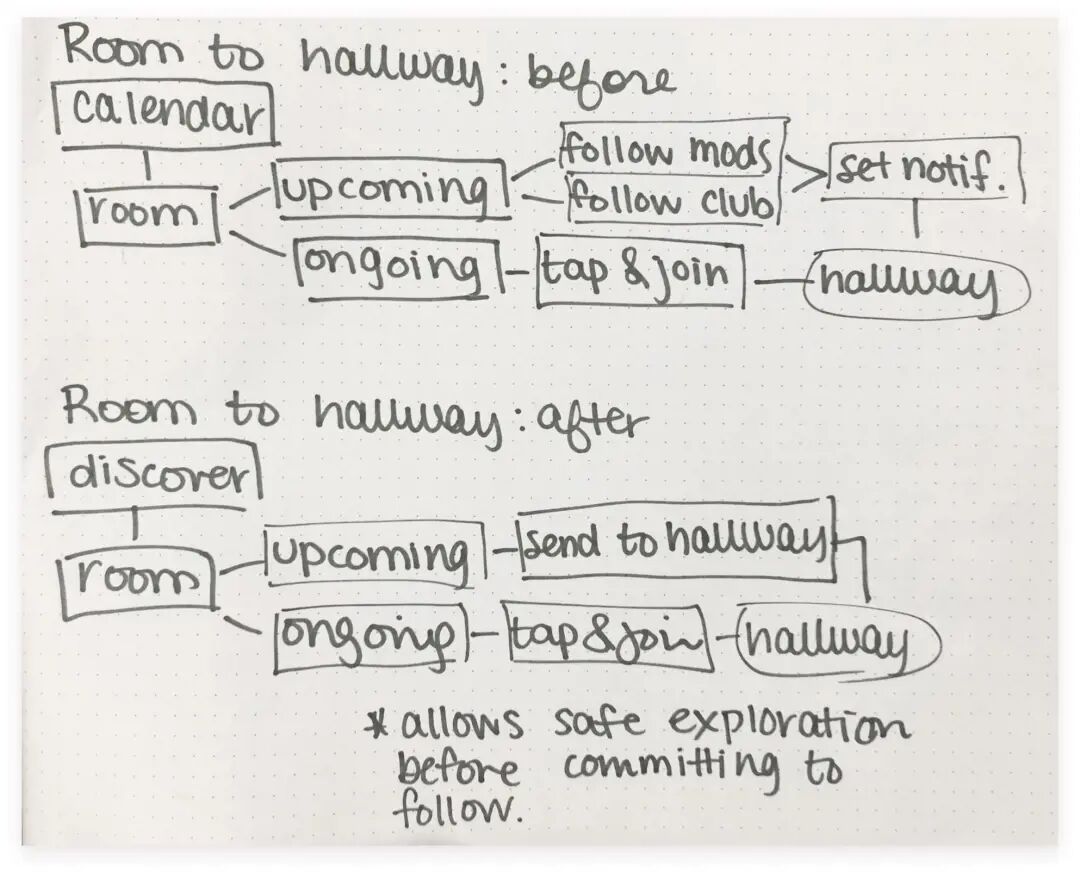 Room to hallway: before
calendar
follow mods
set notif.
room
upcoming
follow club
ongoing
tap & join
hallway
Room to hallway: after
discover
room
upcoming
send to hallway
ongoing
tap & join
hallway
* allows safe exploration
before committing to
follow.